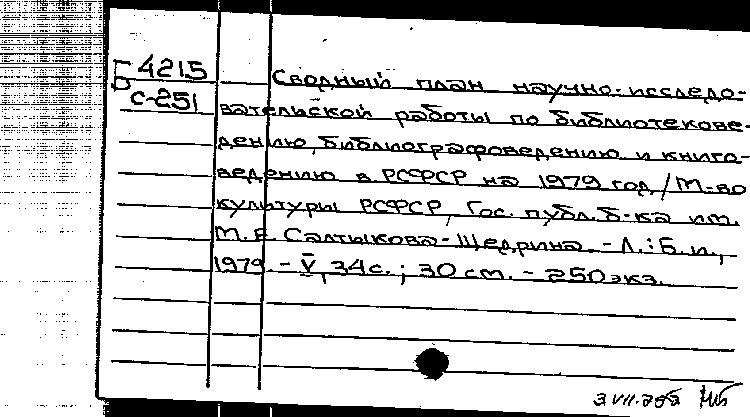 Б 4215
С-251
Сводный план научно-исследо-
вательской работы по библиотекове-
дению, библиографоведению и книго-
ведению в РСФСР на 1979 год / М-во
культуры РСФСР, Гос. публ. б-ка им.
М. Е. Салтыкова-Щедрина. - Л.: Б. и.,
1979. - V, 34 с.; 30 см. - 250 экз.
3 VII